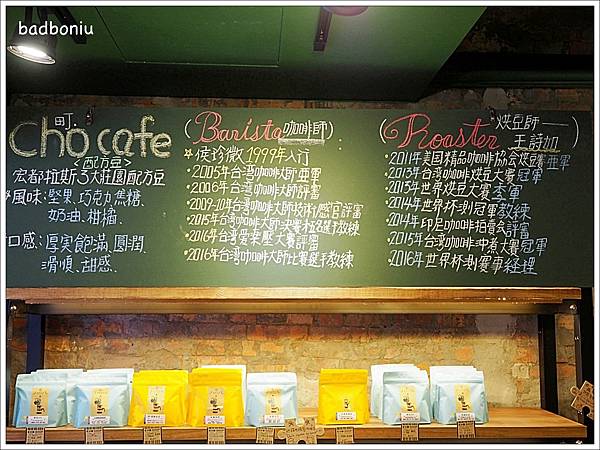 badboniu
町.
Cho cafe
(配方豆)
宏都拉斯3大莊園配方豆
風味:堅果、巧克力、焦糖、
奶油、柑橘、
口感:厚実飽滿、圓潤、
滑順、甜感、
(Barista咖啡師)
侯珍微1999年入行
•2005年台湾咖啡大師亜軍
•2006年台湾咖啡大師評審
•2009-10台湾咖啡大師技術/感官評審
•2015年台湾咖啡大師決賽教練
•2016年台湾愛楽壓大賽評審
•2016年台湾咖啡大師比賽選手教練
(Roaster 烘豆師—
王詩如)
•2011年美国精品咖啡協会烘豆賽亜軍
•2013年台湾咖啡烘豆大賽冠軍
•2015年世界烘豆大賽季軍
•2014年世界杯測冠軍教練
•2014年印尼咖啡拍賣会評審
•2015年台湾咖啡沖煮大賽冠軍
•2016年世界杯測賽事経理